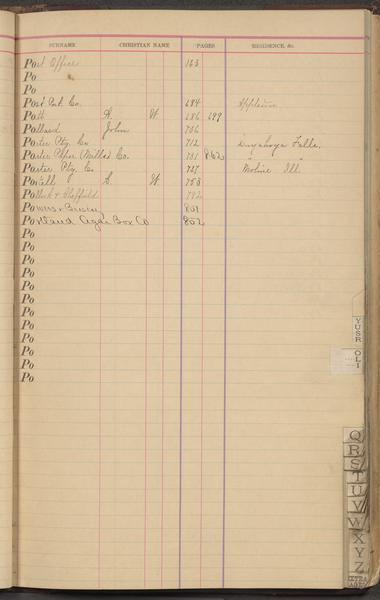 SURNAME CHRISTIAN NAME PAGES RESIDENCE, &c.
Post Office 143
Po
Po
Post Pub. Co. 484 Appleton
Pott A. W. 486 499
Pollard John 706
Porter Ptg. Co 712 Cuyahoga Falls.
Porter Paper Co. 751 862 " "
Porter Ptg. Co. 727 Moline Ill.
Powell C. W. 758
Pollock & 792
Powers & 801
Portland Cigar Box Co 802
Po
Po
Po
Po
Po
Po
Po
Po
Po
Po
Po
Po
YUSR
OLI
Q
R
S
T
U
V
W
X
Y
Z